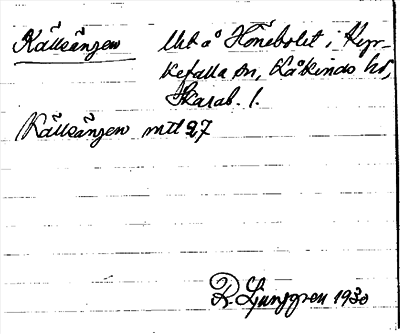 Källsängen Utä å Hönebolet i Kyr-
kefalla sn, Kåkinds hd,
Skarab. l.
Källsängen mtl 27
R. Ljunggren 1930